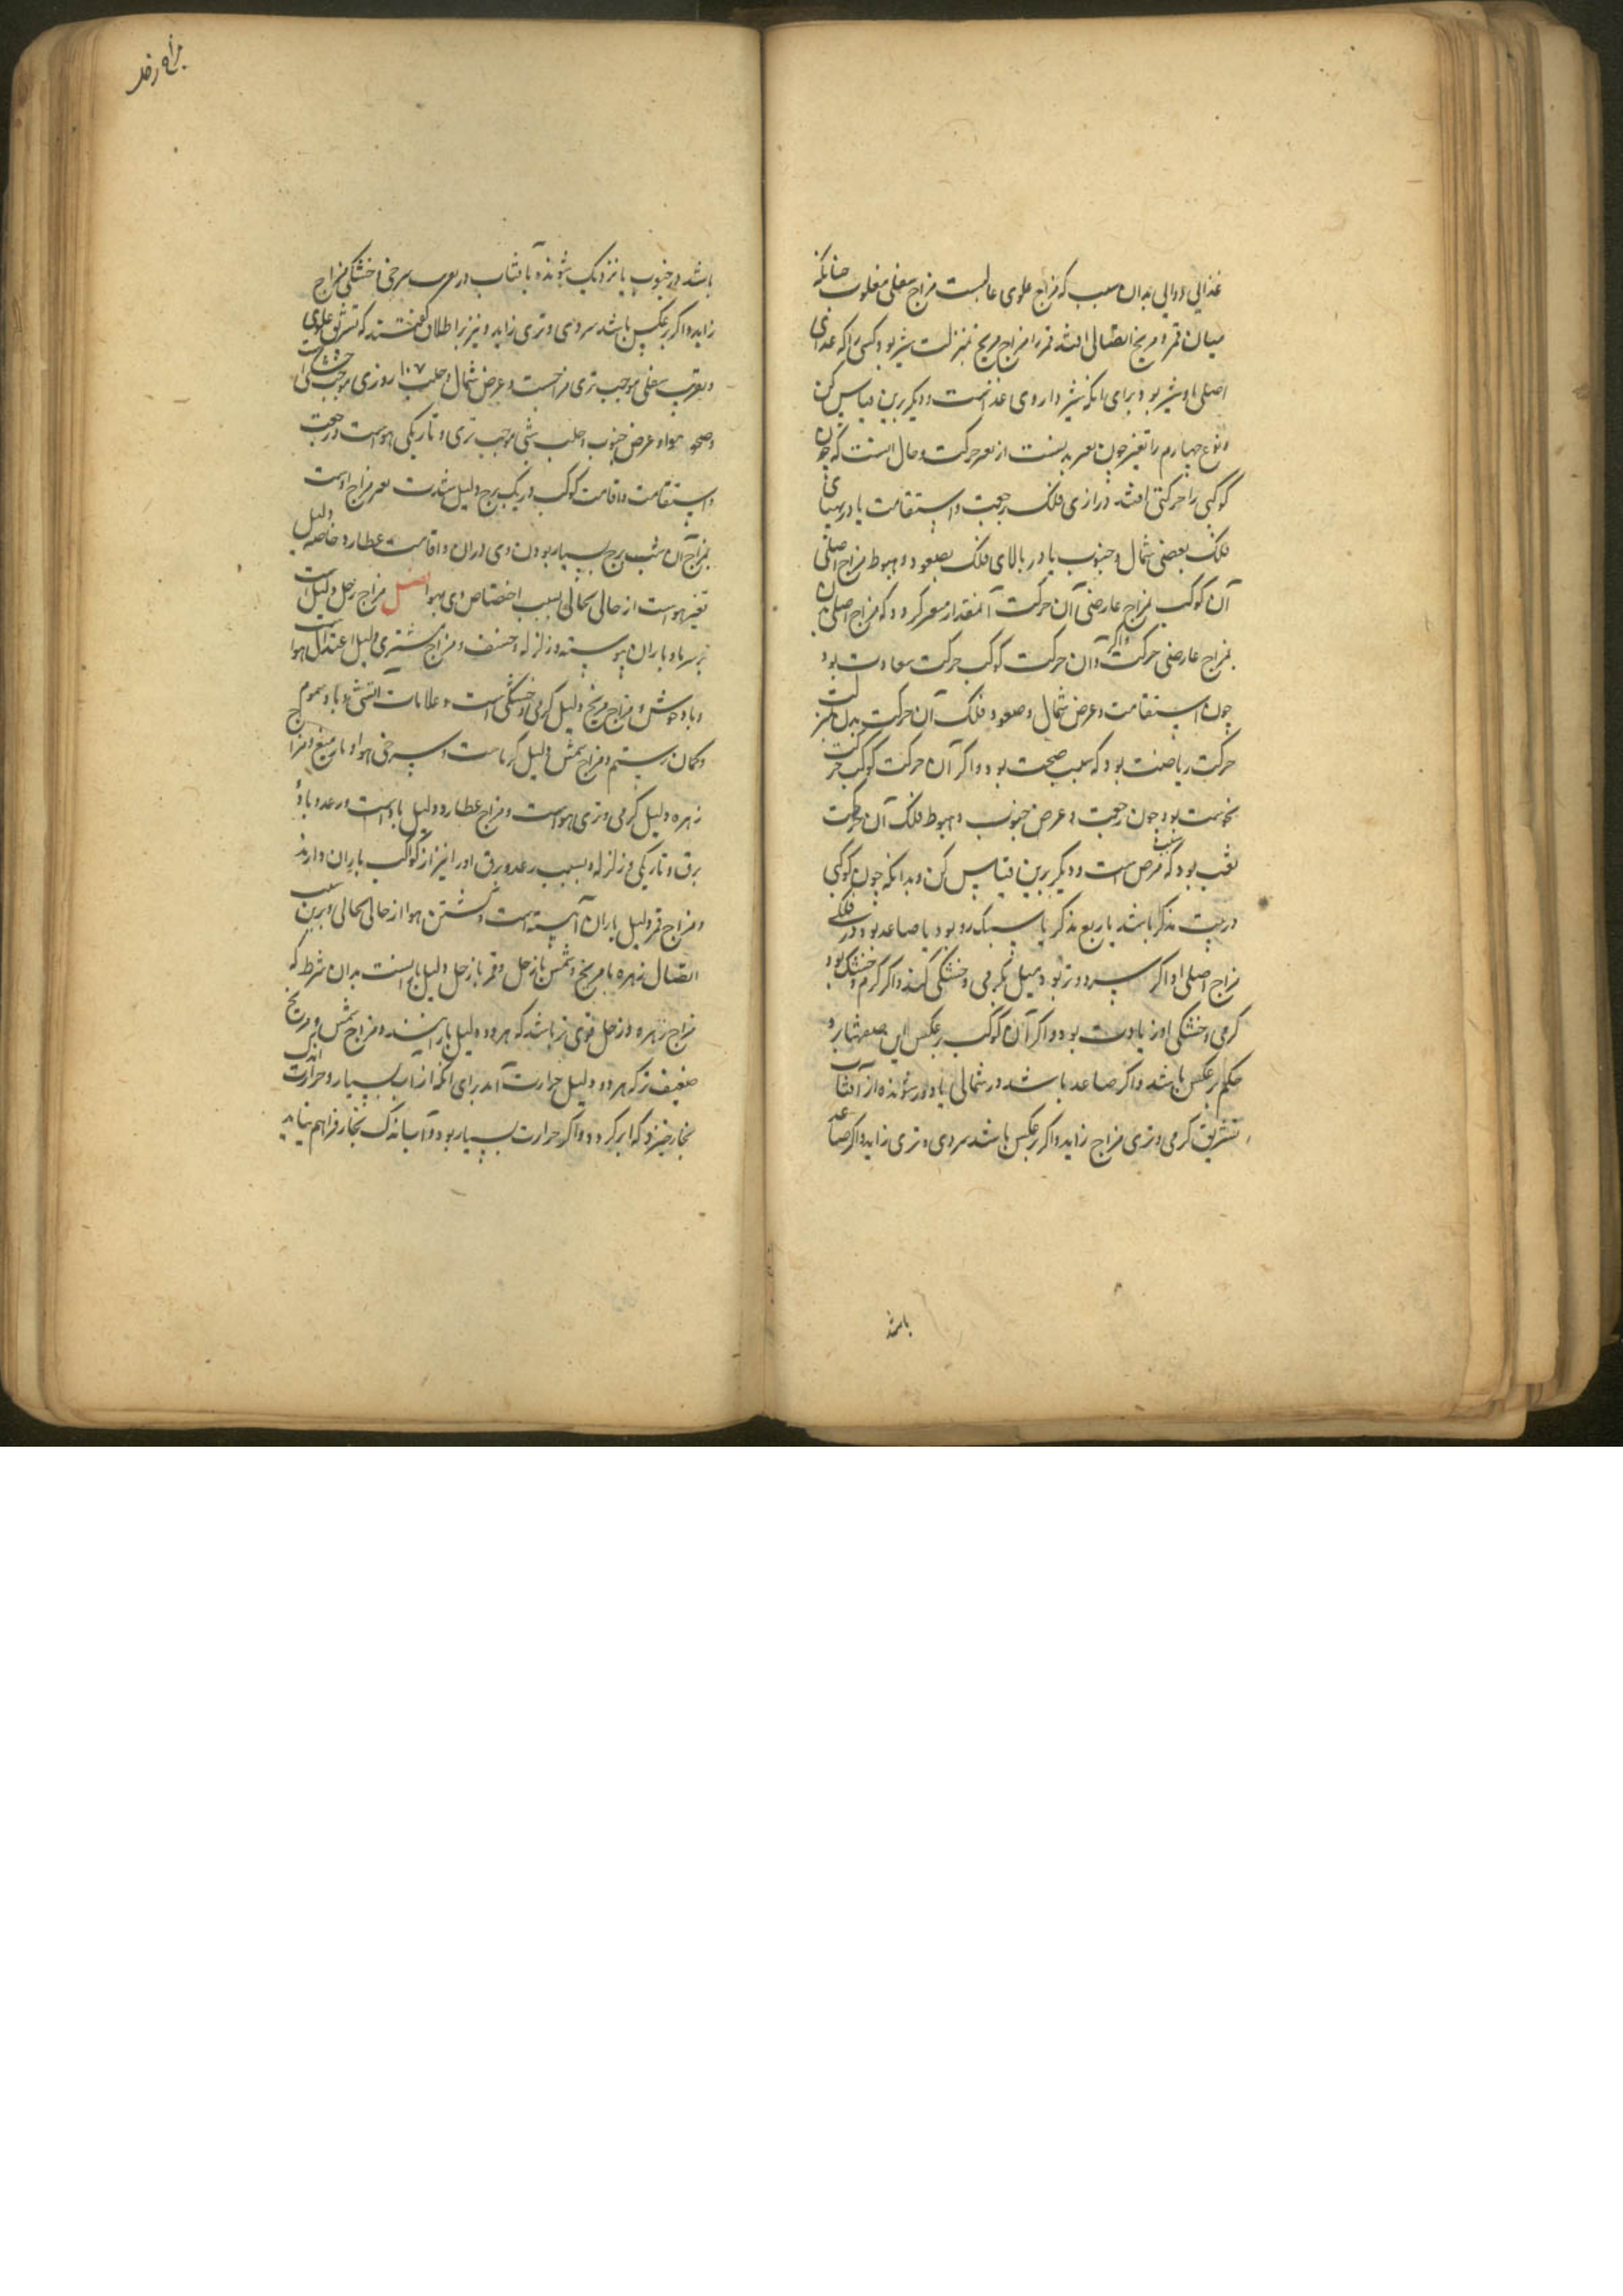 غذایی دوایی بدان سبب که مزاج علوی غالبست مزاج سفلی مغلوب چنانکه
میان قمر و مریخ اتصالی افتد قمر را مزاج مریخ بمنزلت شیر بود کسی را که غذای
اصلی او شیر بود برای آنکه شیر داروی غذائست و دیگر برین قیاس کن
و نوع چهارم را تغیر چون از حرکت و حال آنست که چون
کوکبی را حرکتی افتد در ازای فلک رجعت و استقامت یا در پهنای
فلک یعنی شمال و جنوب یا در بالای فلک بصعود و هبوط مزاج اصلی
آن کوکب بمزاج عارضی آن حرکت آنمقدار کردد که مزاج اصلی بدن
بمزاج عارضی حرکت و اکر آن حرکت کوکب حرکت سعادت بود
چون استقامت و عرض شمال و صعود فلک آن حرکت بدن بمنزلت
حرکت ریاضت بود که سبب صحت بود و اکر آن حرکت کوکب حرکت
نحوست بود چون رجعت و عرض جنوب و هبوط فلک آن حرکت
تعب بود که سبب مرض است و دیکر برین قیاس کن و بدانکه چون کوکبی
در بیت مذکر باشد یا ربع مذکر یا سبک رو بود یا صاعد بود در فلک
مزاج اصلی او اکر سرد و تر بود میل بکرمی و خشکی کند و اکر کرم و خشک بود
کرمی و خشکی او زیادت بود و اکر آن کوکب برعکس این صفتها بود
حکم برعکس باشد و اکر صاعد باشد در شمالی یا دور شونده از آفتاب
تشریق کرمی و تری مزاج زاید و اکر برعکس باشد سردی و تری زاید و اکر صاعد
باشد
باشد در جنوب یا نزدیک شونده بآفتاب در خشکی مزاج
زاید و اکر برعکس باشد سردی و تری زاید و نیز بر اطلاق کفتستند که تشریق علوی
سفلی موجب تری مزاجست و عرض شمال و روزی موجب خشکی
هوا و عرض جنوب شبی موجب تری و تاریکی هواست و رجعت
و استقامت و اقامت کوکب در یک برج دلیل شدت مزاج اوست
بمزاج آن برج بسبب بسیار بودن وی در آن و اقامت عطارد خاصه دلیل
تغیر هواست از حالی بحالی بسبب اختصاص وی بهوا فصل مزاج زحل دلیل است
بر سرما و باران پیوسته و زلزله و خسف و مزاج مشتری دلیل اعتدال هوا
و باد خوش و مزاج مریخ دلیل کرمی و خشکی است و علامات آتشی و باد سموم
و کمان رستم و مزاج شمس دلیل کرماست و سرخی هوا و میغ و مزاج
زهره دلیل کرمی و تری هواست و مزاج عطارد دلیل باد است و رعد و باد و
برق و تاریکی و زلزله و بسبب رعد و برق او را نیز از کواکب باران دارند
و مزاج قمر دلیل باران آهسته است و کشتن هوا از حالی بحالی و برین سبب
اتصال زهره با مریخ و شمس با زحل و قمر با زحل دلیل بارانست بدان شرط که
مزاج زهره و زحل قوی تر باشد که هر دو دلیل بارانند و مزاج شمس و مریخ
ضعیف تر که هر دو دلیل حرارت اند برای آنکه از آب بسیار و حرارت اندک
بخار خیزد که ابر کردد و اکر حرارت بسیار بود و آب اندک بخار فراهم نیاید